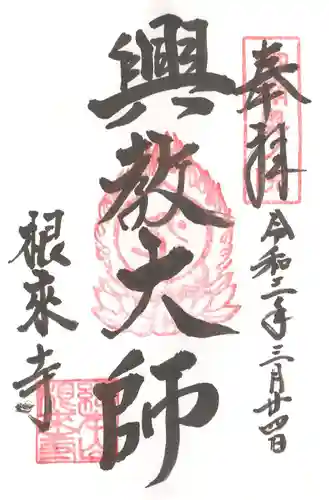 奉拝
令和二年三月廿四日
興教大師
根來寺